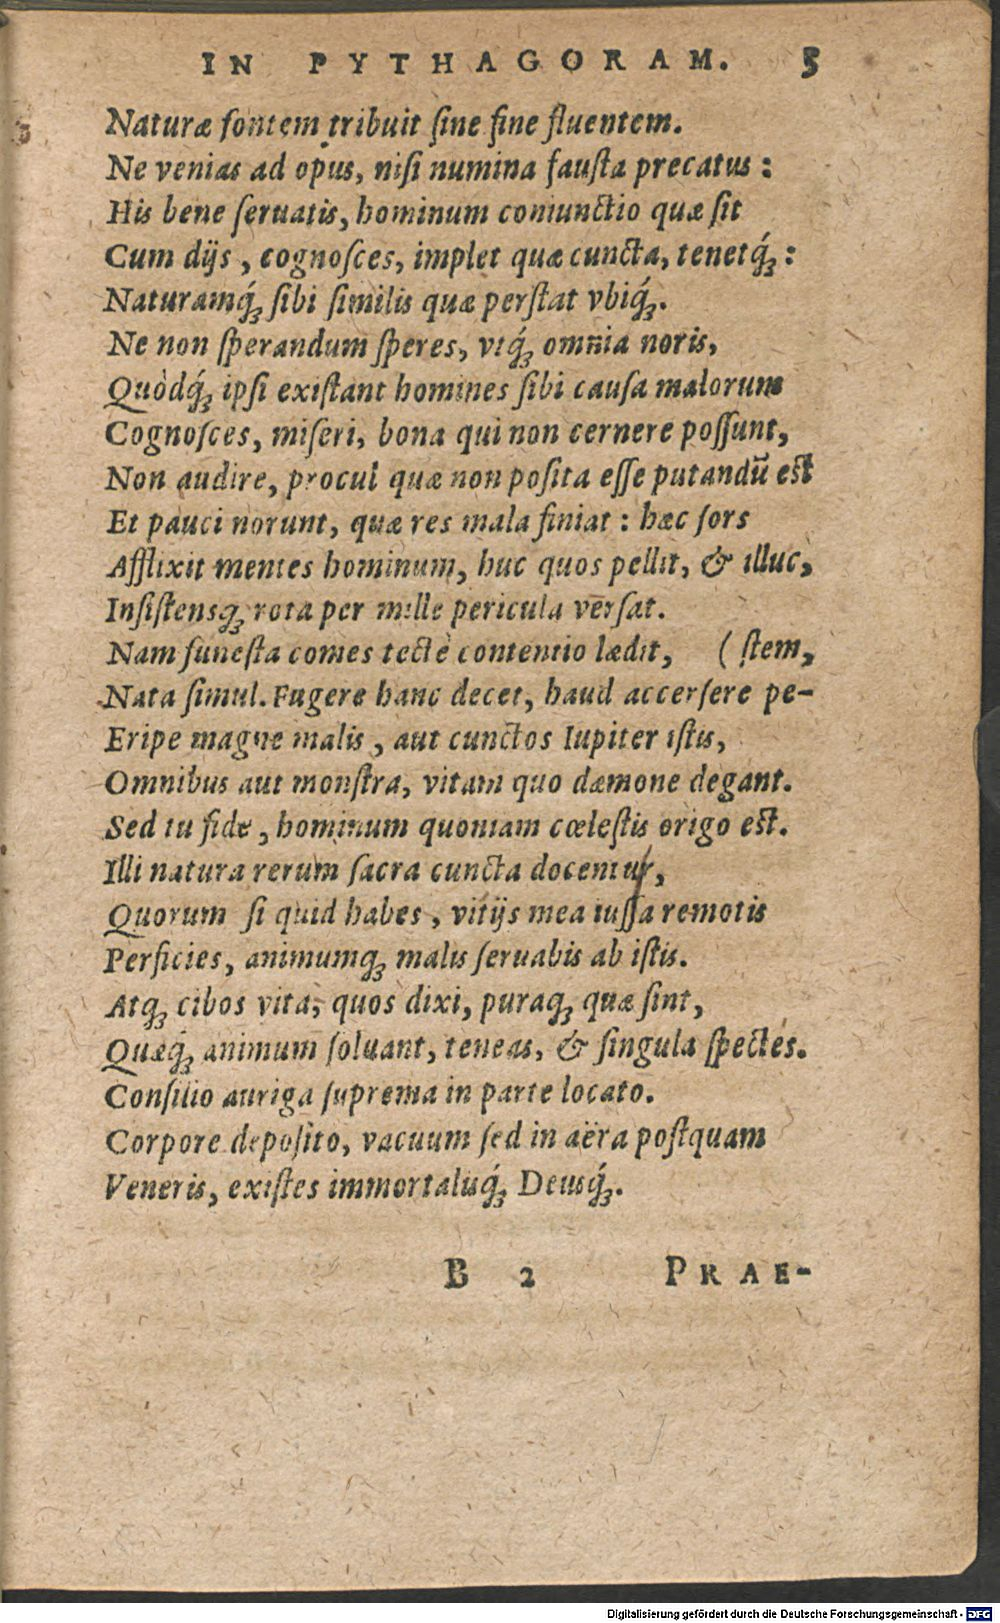 IN PYTHAGORAM. 5
Naturæ fontem tribuit ſine fine fluentem.
Ne venias ad opus, niſi numina fauſta precatus:
His bene ſeruatis, hominum coniunctio quæ ſit
Cum dijs, cognoſces, implet quæ cuncta, tenetq́;:
Naturamq́; ſibi ſimilis quæ perſtat vbiq́;.
Ne non ſperandum ſperes, vtq́; omnia noris,
Quòdq́; ipſi exiſtant homines ſibi cauſa malorum
Cognoſces, miſeri, bona qui non cernere poſſunt,
Non audire, procul quæ non poſita eſſe putandū eſt
Et pauci norunt, quæ res mala finiat: hæc ſors
Afflixit mentes hominum, huc quos pellit, & illuc,
Inſiſtensq; rota per mille pericula verſat.
Nam funeſta comes tectè contentio lædit, (ſtem,
Nata ſimul. Fugere hanc decet, haud accerſere pe-
Eripe magne malis, aut cunctos Iupiter iſtis,
Omnibus aut monſtra, vitam quo dæmone degant.
Sed tu fide, hominum quoniam cœleſtis origo eſt.
Illi natura rerum ſacra cuncta docentur,
Quorum ſi quid habes, vitijs mea iuſſa remotis
Perficies, animumq; malis ſeruabis ab iſtis.
Atq; cibos vita, quos dixi, puraq; quæ ſint,
Quæq́; animum ſoluant, teneas, & ſingula ſpectes.
Conſilio auriga ſuprema in parte locato.
Corpore depoſito, vacuum ſed in aëra poſtquam
Veneris, exiſtes immortalisq́; Deusq́;.
B 2 PRAE-
Digitalisierung gefördert durch die Deutsche Forschungsgemeinschaft - DFG